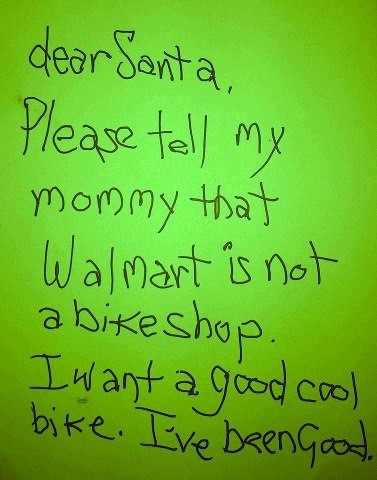 dear Santa,
Please tell my
mommy that
Walmart is not
a bike shop.
I want a good cool
bike. I've been Good.